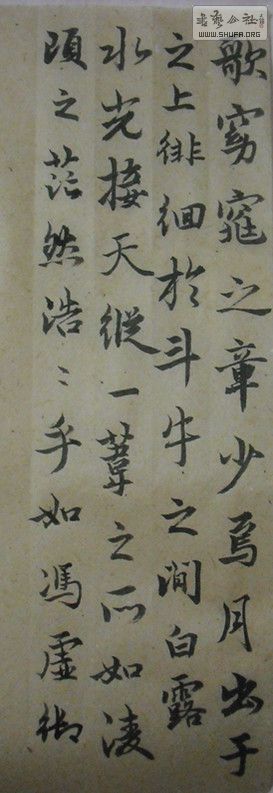 歌窈窕之章少焉月出于
之上徘徊於斗牛之澗白露
水光接天縱一葦之所如凌
頃之茫然浩〻乎如馮虛御
書藝公社
WWW.SHUFA.ORG